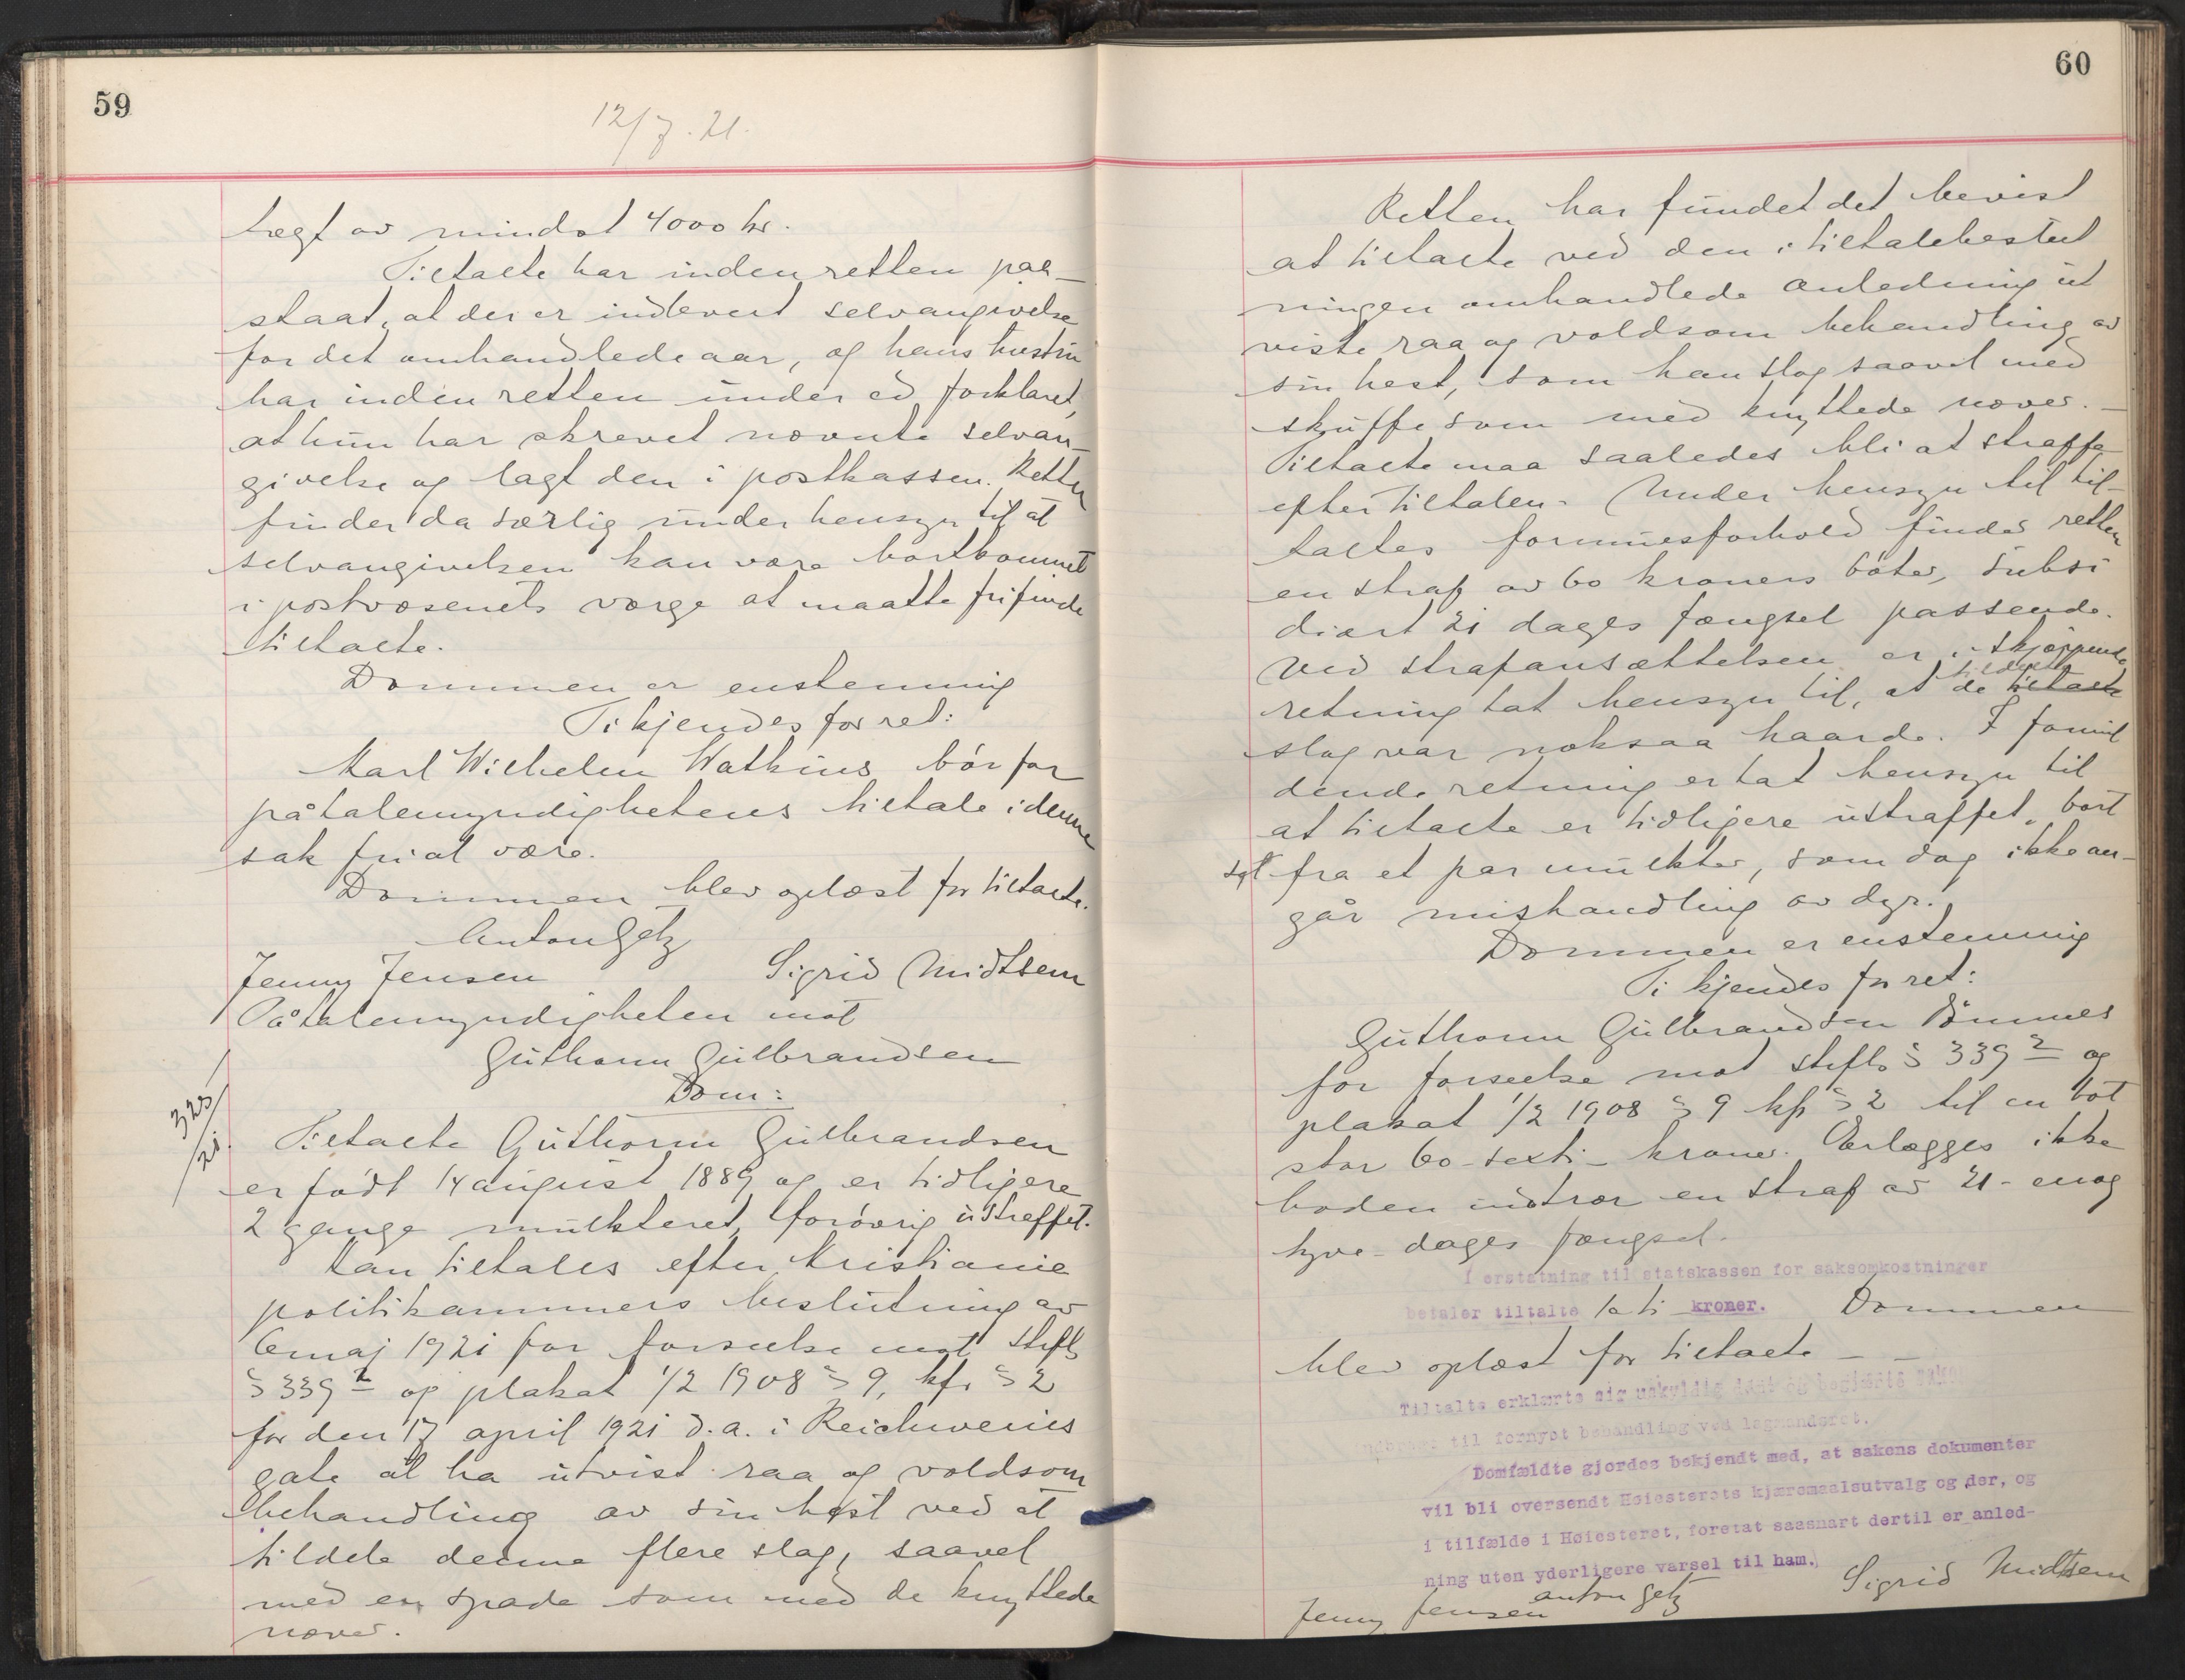 59
12/7.21.
tægt av mindst 4000 kr.
Tiltalte har inden retten paa-
staat, at der er indlevert selvangivelse
for det omhandlede aar, og hans hustru
har inden retten under ed forklaret,
at hun har skrevet nævnte selvan-
givelse og lagt den i postkassen. Retten
finder da særlig under hensyn til at
selvangivelsen kan være bortkommet
i postvæsenets værge at maatte frifinde
tiltalte.
Dommen er enstemmig
Ti kjendes for ret:
Karl Wilhelm Watkins bør for
påtalemyndighetens tiltale i denne
sak fri at være.
Dommen blev oplæst for tiltalte.
Anton Getz
Jenny Jensen Sigrid Midtsem
Påtalemyndigheten mot
Guthorm Gulbrandsen
Dom:
323/21.
Tiltalte Guthorm Gulbrandsen
er født 14 august 1889 og er tidligere
2 gange mulktert, forøvrig ustraffet.
Han tiltales efter Kristiania
politikammers beslutning av
6 maj 1921 for forseelse mot Stfl
§ 339 2 og plakat 1/2 1908 § 9, kfr § 2
for den 17 april 1921 d.a. i Reichweins
gate at ha utvist raa og voldsom
behandling av sin hest ved at
tildele denne flere slag, saavel
med en spade som med de knyttede
næver.
60
Retten har fundet det bevist
at tiltalte ved den i tiltalebeslut
ningen omhandlede anledning ut
viste raa og voldsom behandling av
sin hest, som han slog saavel med
skuffe som med knyttede næver.-
Tiltalte maa saaledes bli at straffe
efter tiltalen. Under hensyn til til-
taltes formuesforhold findes retten
en straf av 60 kroners bøter, subsi
diært 21 dages fængsel passende.
Ved strafansættelsen er i skjærpende
retning tat hensyn til, at de tildelte tiltalte
slag var noksaa haarde. I formil
dende retning er tat hensyn til
at tiltalte er tidligere ustraffet, bort
set fra et par mulkter, som dog ikke an-
går mishandling av dyr.
Dommen er enstemmig
Ti kjendes for ret:
Guthorm Gulbrandsen dømmes
for forseelse mot stfls § 339 2 og
plakat 1/2 1908 § 9 kfr § 2 til en bot
stor 60 - seksti - kroner. Erlægges ikke
boden indtrær en straf av 21 - en og
tyve - dages fængsel.
I erstatning til statskassen for saksomkostninger
betaler tiltalte 10 ti kroner. Dommen
blev oplæst for tiltalte - -
Tiltalte erklærte sig uskyldig dømt og begjærte saken
indbragt til fornyet behandling ved lagmandsret.
Domfældte gjordes bekjendt med, at sakens dokumenter
vil bli oversendt Høiesterets kjæremaalsutvalg og der, og
i tilfælde i Høiesteret, foretat saasnart dertil er anled-
ning uten yderligere varsel til ham.
Jenny Jensen Anton Getz Sigrid Midtsem